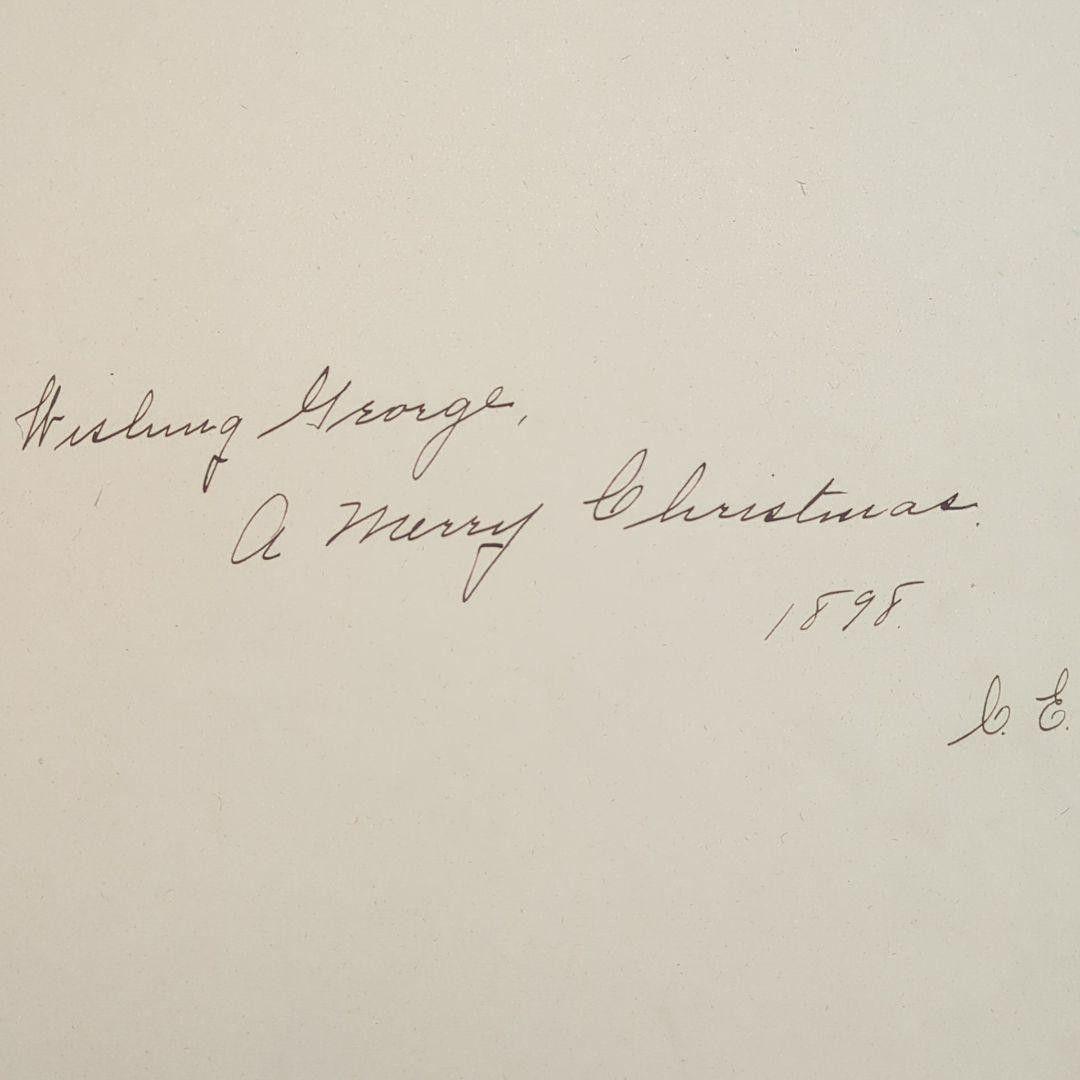 Wishing George,
A Merry Christmas.
1898.
C. E.